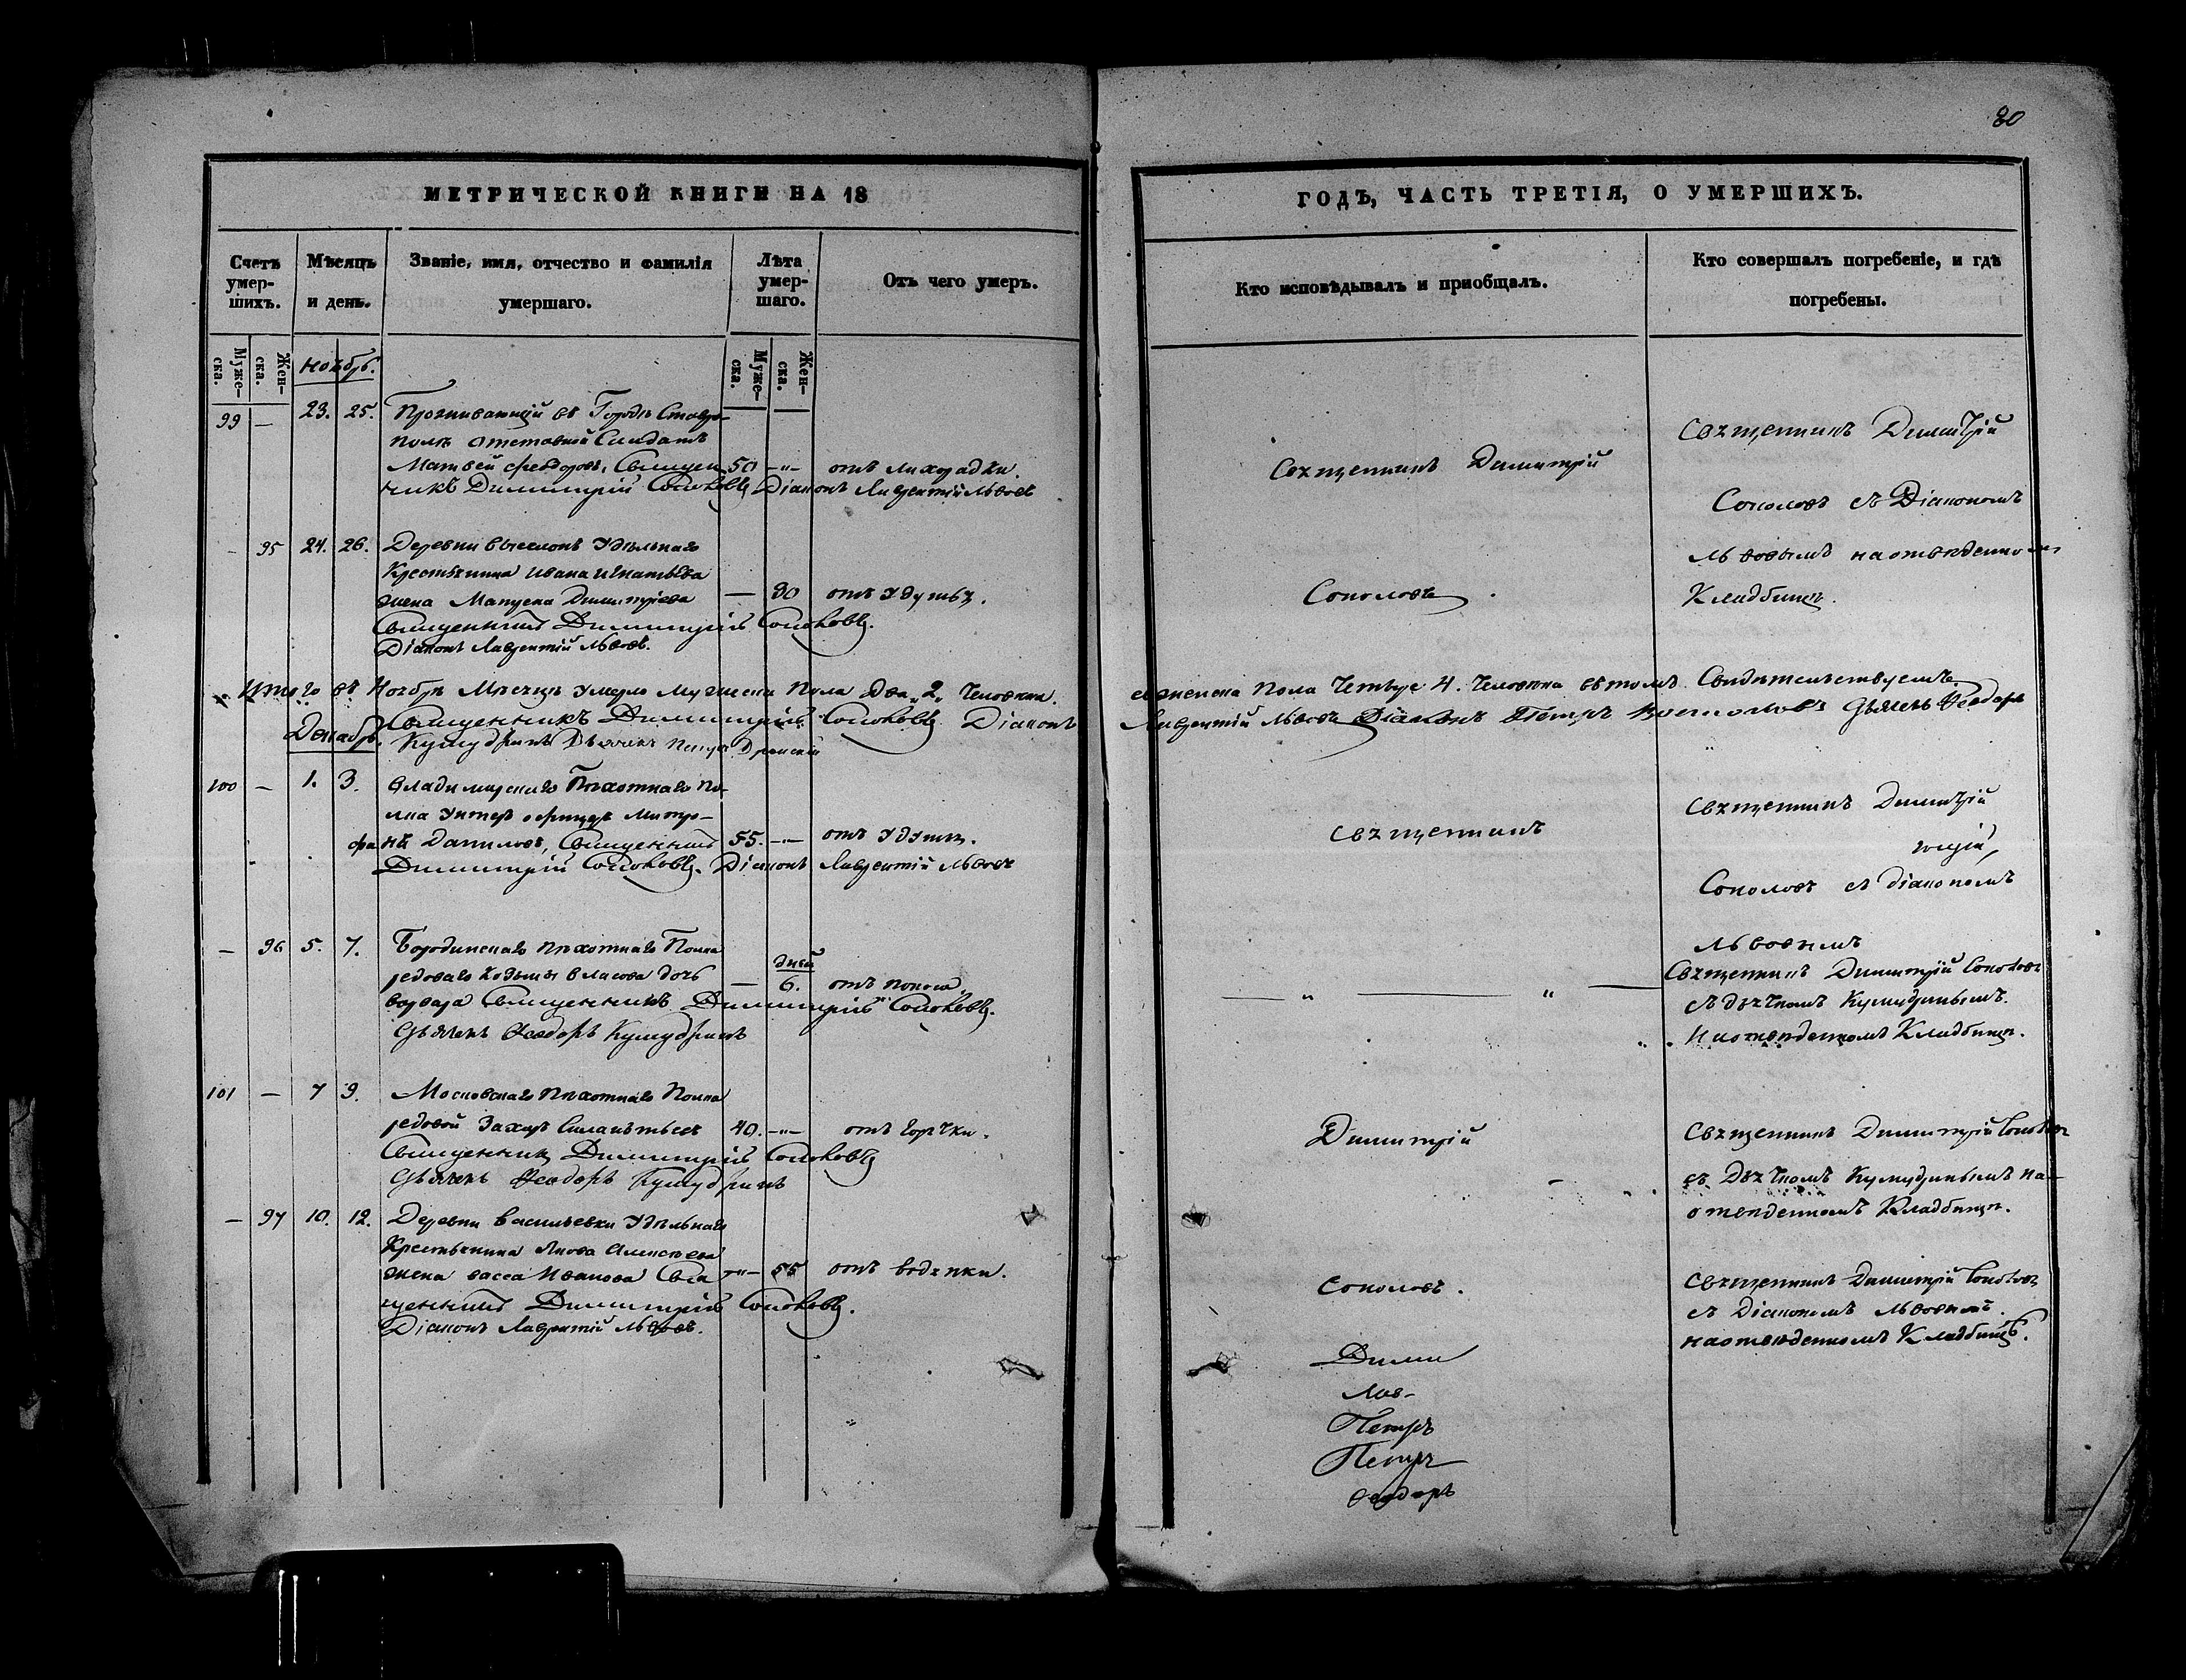 80
МЕТРИЧЕСКОЙ КНИГИ НА 18
ГОДЪ, ЧАСТЬ ТРЕТІЯ, О УМЕРШИХЪ.
Счетъ умер-шихъ.
Мѣсяцъ и день.
Званіе, имя, отчество и фамилія умершаго.
Лѣта умер-шаго.
Отъ чего умеръ.
Кто исповѣдывалъ и приобщалъ.
Кто совершалъ погребеніе, и гдѣ погребены.
Муже-ска.
Жен-ска.
Муже-ска.
Жен-ска.
Ноябрь.
99 — 23. 25. Проживающій въ Городѣ Ставро-
полѣ отставной Солдатъ
Матвей Феодоровъ, Священ- 50 -"- отъ лихорадки
никъ Димитрій Соколовъ Діаконъ Лаврентій Львовъ
Священникъ Димитрій
Священникъ Димитрій
Соколовъ съ Діакономъ
— 95 24. 26. Деревни выселокъ Удѣльнаго
Крестьянина Ивана Игнатьева
жена Димитріева — 80 отъ Удушья.
Священникъ Димитрій Соколовъ.
Діаконъ Лаврентій Львовъ.
Соколовъ.
Львовымъ на отведенномъ
Кладбищѣ.
Итого въ Ноябрѣ Мѣсяцѣ умерло мужеска Пола два „2„ Человѣка.
а женска Пола Четыре 4. Человѣка въ томъ Свидѣтельствуемъ.
Священникъ Димитрій Соколовъ Діаконъ
Лаврентій Львовъ Діаконъ Петръ Дьячекъ Феодоръ
Декабрь.
Кумудринъ Дьячекъ
100 — 1. 3. Владимирскаго Пѣхотнаго По-
лка Унтеръ офицеръ Митро-
фанъ Даниловъ, Священникъ 55. -"- отъ Удушья.
Димитрій Соколовъ. Діаконъ Лаврентій Львовъ
Священникъ
Священникъ Димитрій
Соколовъ съ діакономъ
Львовымъ
— 96 5. 7. Бородинскаго Пѣхотнаго Полка
дней
редоваго Козьмы Власова дочь — 6. отъ поноса
Варвара Священникъ Димитрій Соколовъ.
Дьячекъ Феодоръ Кумудринъ
— " — " —
Священникъ Димитрій Соколовъ
съ дьячкомъ Кумудринымъ.
На отведенномъ Кладбищѣ.
101 — 7 9. Московскаго Пѣхотнаго Полка
редовой Захаръ Силантьевъ 40. -"- отъ горячки.
Священникъ Димитрій Соколовъ
Дьячекъ Феодоръ Кумудринъ
Димитрій
Священникъ Димитрій Соколовъ
съ Дьячкомъ Кумудринымъ на-
отведенномъ Кладбищѣ.
— 97 10. 12. Деревни Васильевки Удѣльнаго
Крестьянина Якова Алексѣева
жена Васса Иванова Свя- -"- 55 отъ водянки.
щенникъ Димитрій Соколовъ.
Діаконъ Лаврентій Львовъ.
Соколовъ.
Священникъ Димитрій Соколовъ
съ Діакономъ Львовымъ.
на отведенномъ Кладбищѣ.
Дими
Лав-
Петръ
Петръ
Феодоръ